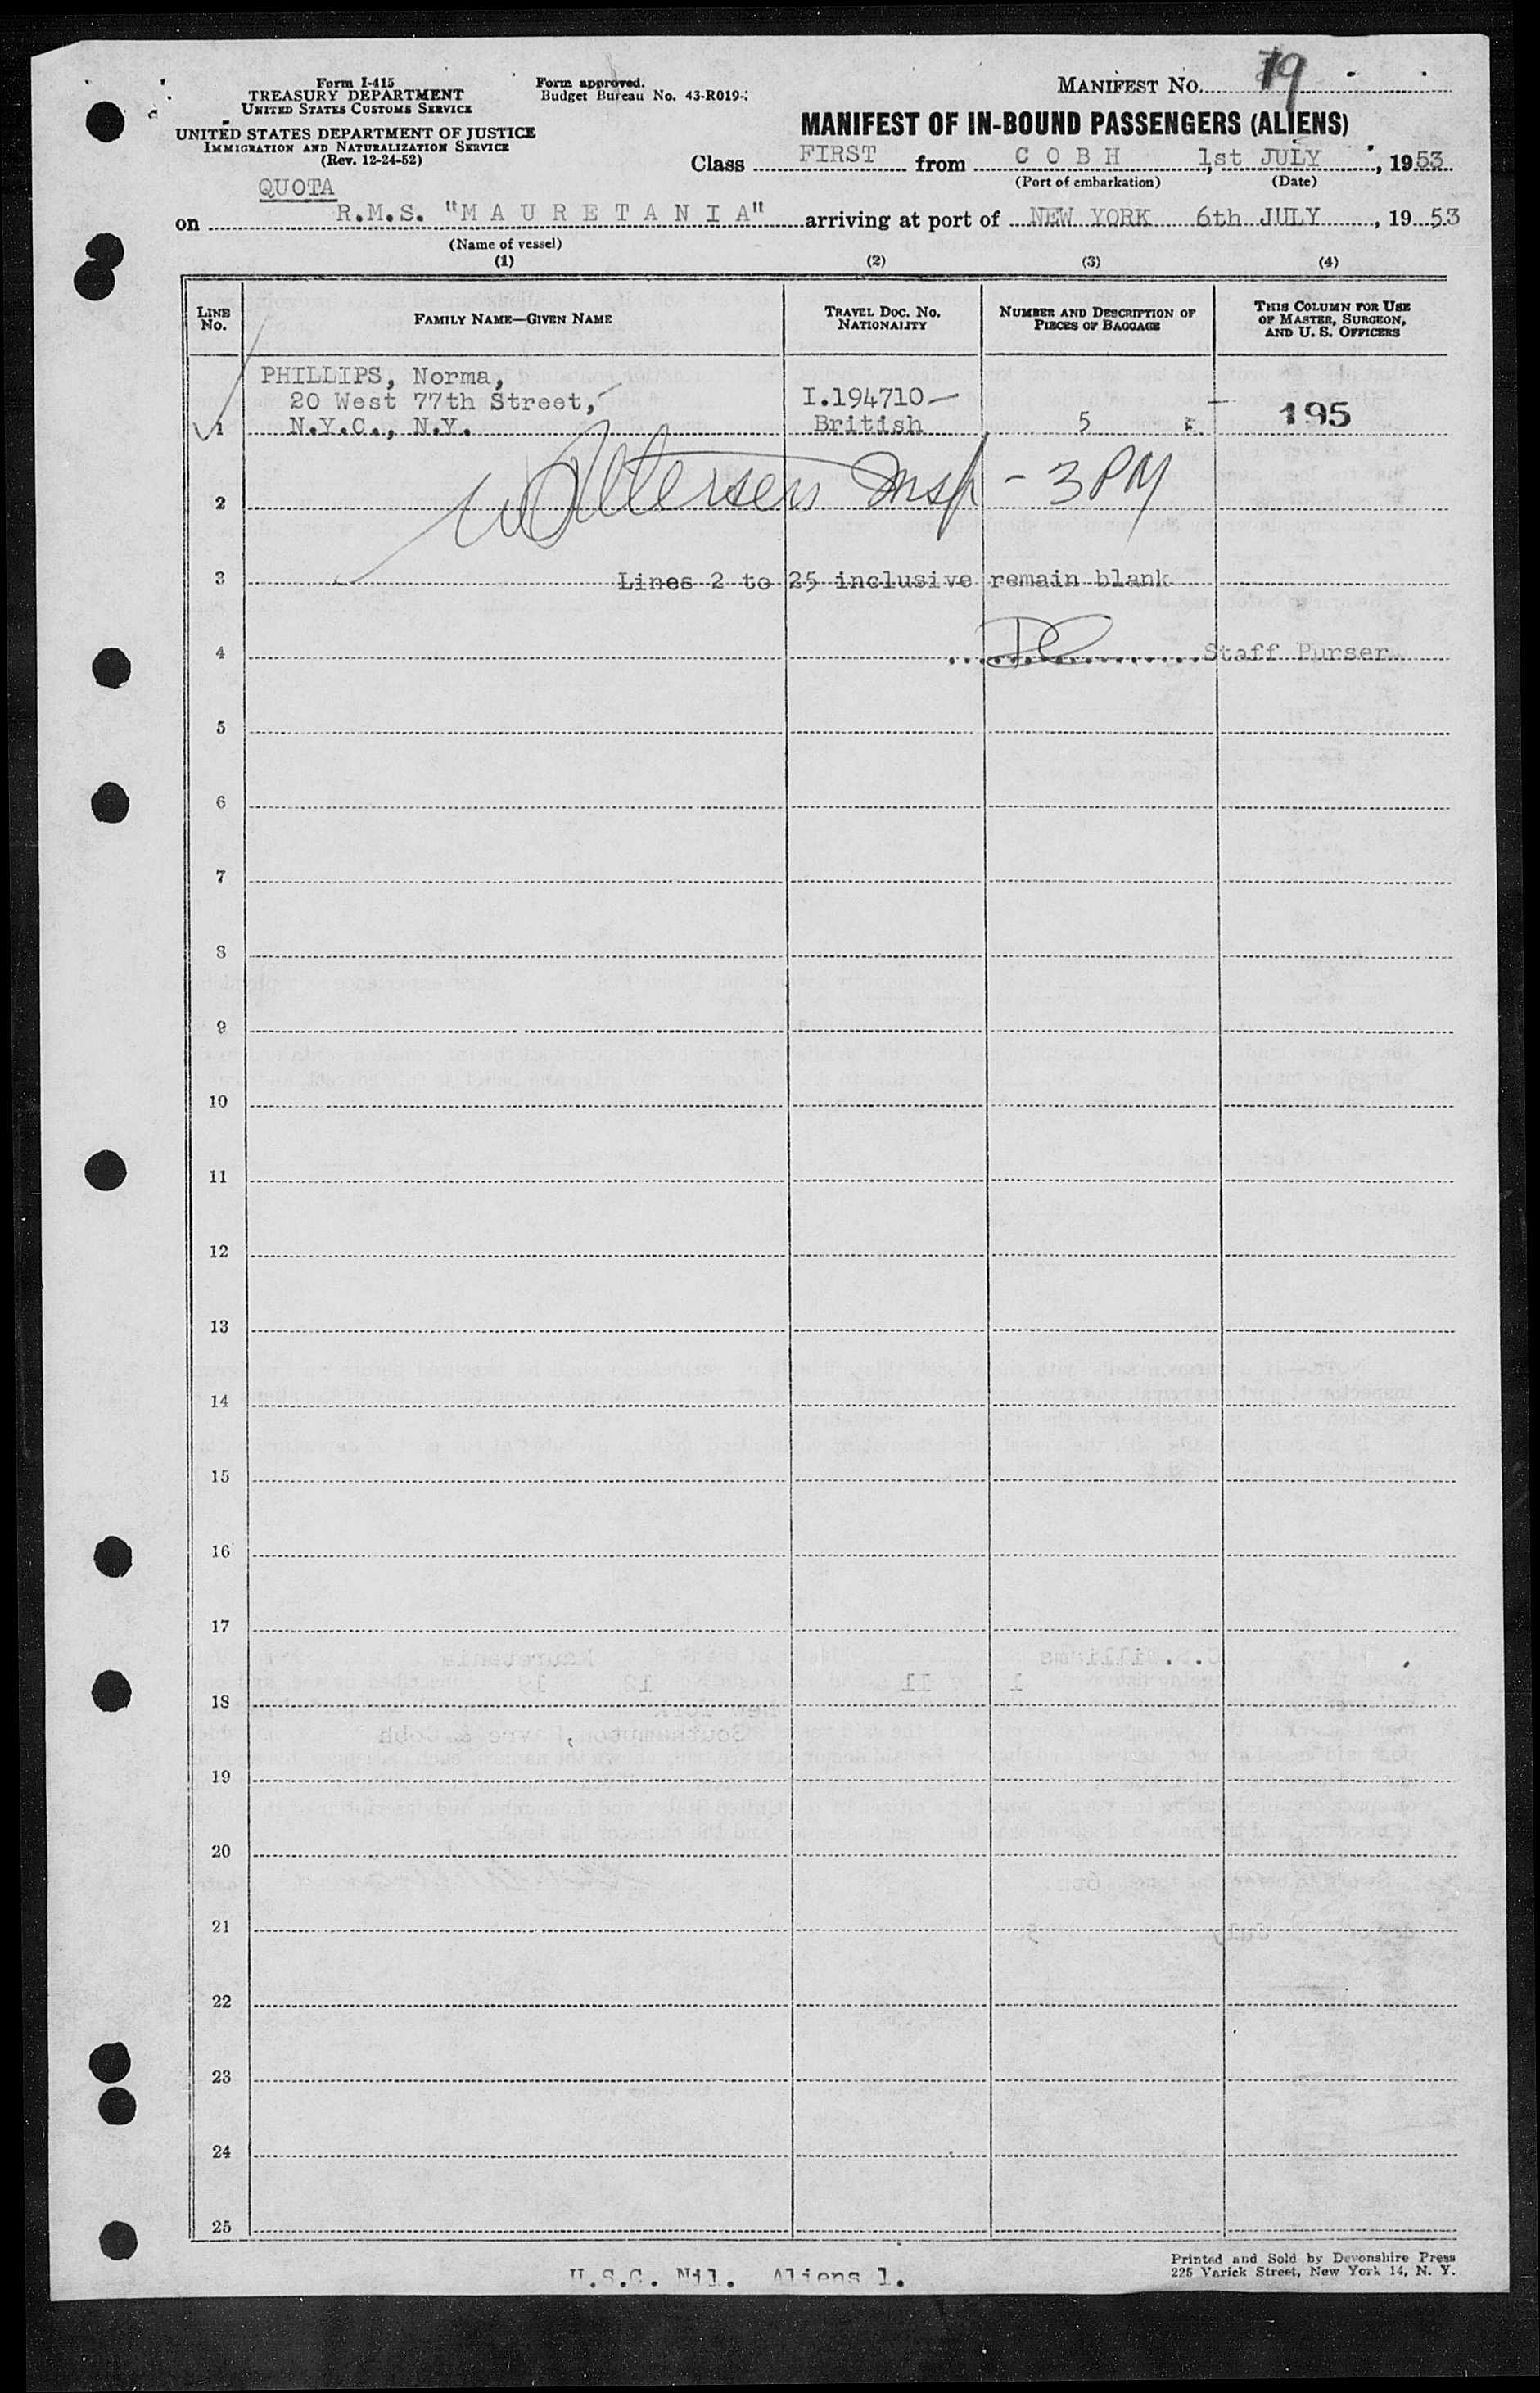 Form I-415
TREASURY DEPARTMENT
UNITED STATES CUSTOMS SERVICE
UNITED STATES DEPARTMENT OF JUSTICE
IMMIGRATION AND NATURALIZATION SERVICE
(Rev. 12-24-52)
Form approved.
Budget Bureau No. 43-R019-
MANIFEST No. 19
MANIFEST OF IN-BOUND PASSENGERS (ALIENS)
Class FIRST from C O B H 1st JULY, 1953
(Port of embarkation) (Date)
QUOTA
on R.M.S. "M A U R E T A N I A" arriving at port of NEW YORK 6th JULY, 1953
(Name of vessel)
(1) (2) (3) (4)
LINE No. FAMILY NAME—GIVEN NAME TRAVEL DOC. NO. NATIONALITY NUMBER AND DESCRIPTION OF PIECES OF BAGGAGE THIS COLUMN FOR USE OF MASTER, SURGEON, AND U. S. OFFICERS
PHILLIPS, Norma,
20 West 77th Street, I.194710
1 N.Y.C., N.Y. British 5 195
2 Insp - 3 PM
3 Lines 2 to 25 inclusive remain blank
4 Staff Purser
5
6
7
8
9
10
11
12
13
14
15
16
17
18
19
20
21
22
23
24
25
U.S.C. Nil. Aliens 1.
Printed and Sold by Devonshire Press
225 Varick Street, New York 14, N. Y.